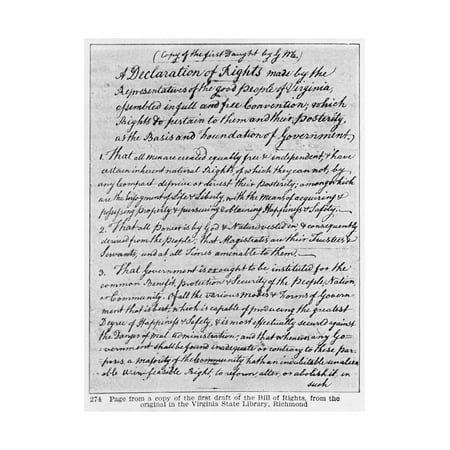 (Copy of the first Daught by G M.)
A Declaration of Rights made by the
Representatives of the good People of Virginia,
assembled in full and free Convention; which
Rights do pertain to them and their Posterity,
as the Basis and Foundation of Government.
1. That all men are created equally free & independent, & have
certain inherent natural Rights, of which they cannot, by
any Compact, deprive or divest their Posterity; among which
are the Enjoyment of Life & Liberty, with the Means of acquiring &
possessing Property, & pursueing & obtaining Happiness & Safety.
2. That all Power is by God & Nature vested in, & consequently
derived from the People; that Magistrates are their Trustees &
Servants, and at all Times amenable to them.
3. That Government is, or ought to be instituted for the
common Benefit, Protection & Security of the People, Nation,
or Community. Of all the various Modes & Forms of Govern-
ment that is best, which is capable of producing the greatest
Degree of Happiness & Safety, & is most effectually secured against
the Danger of mal-administration; and that whenever any Go-
vernment shall be found inadequate or contrary to these pur-
poses a majority of the Community hath an indubitable unalien-
able & indefeasible Right, to reform, alter, or abolish it, in
such
274 Page from a copy of the first draft of the Bill of Rights, from the
original in the Virginia State Library, Richmond